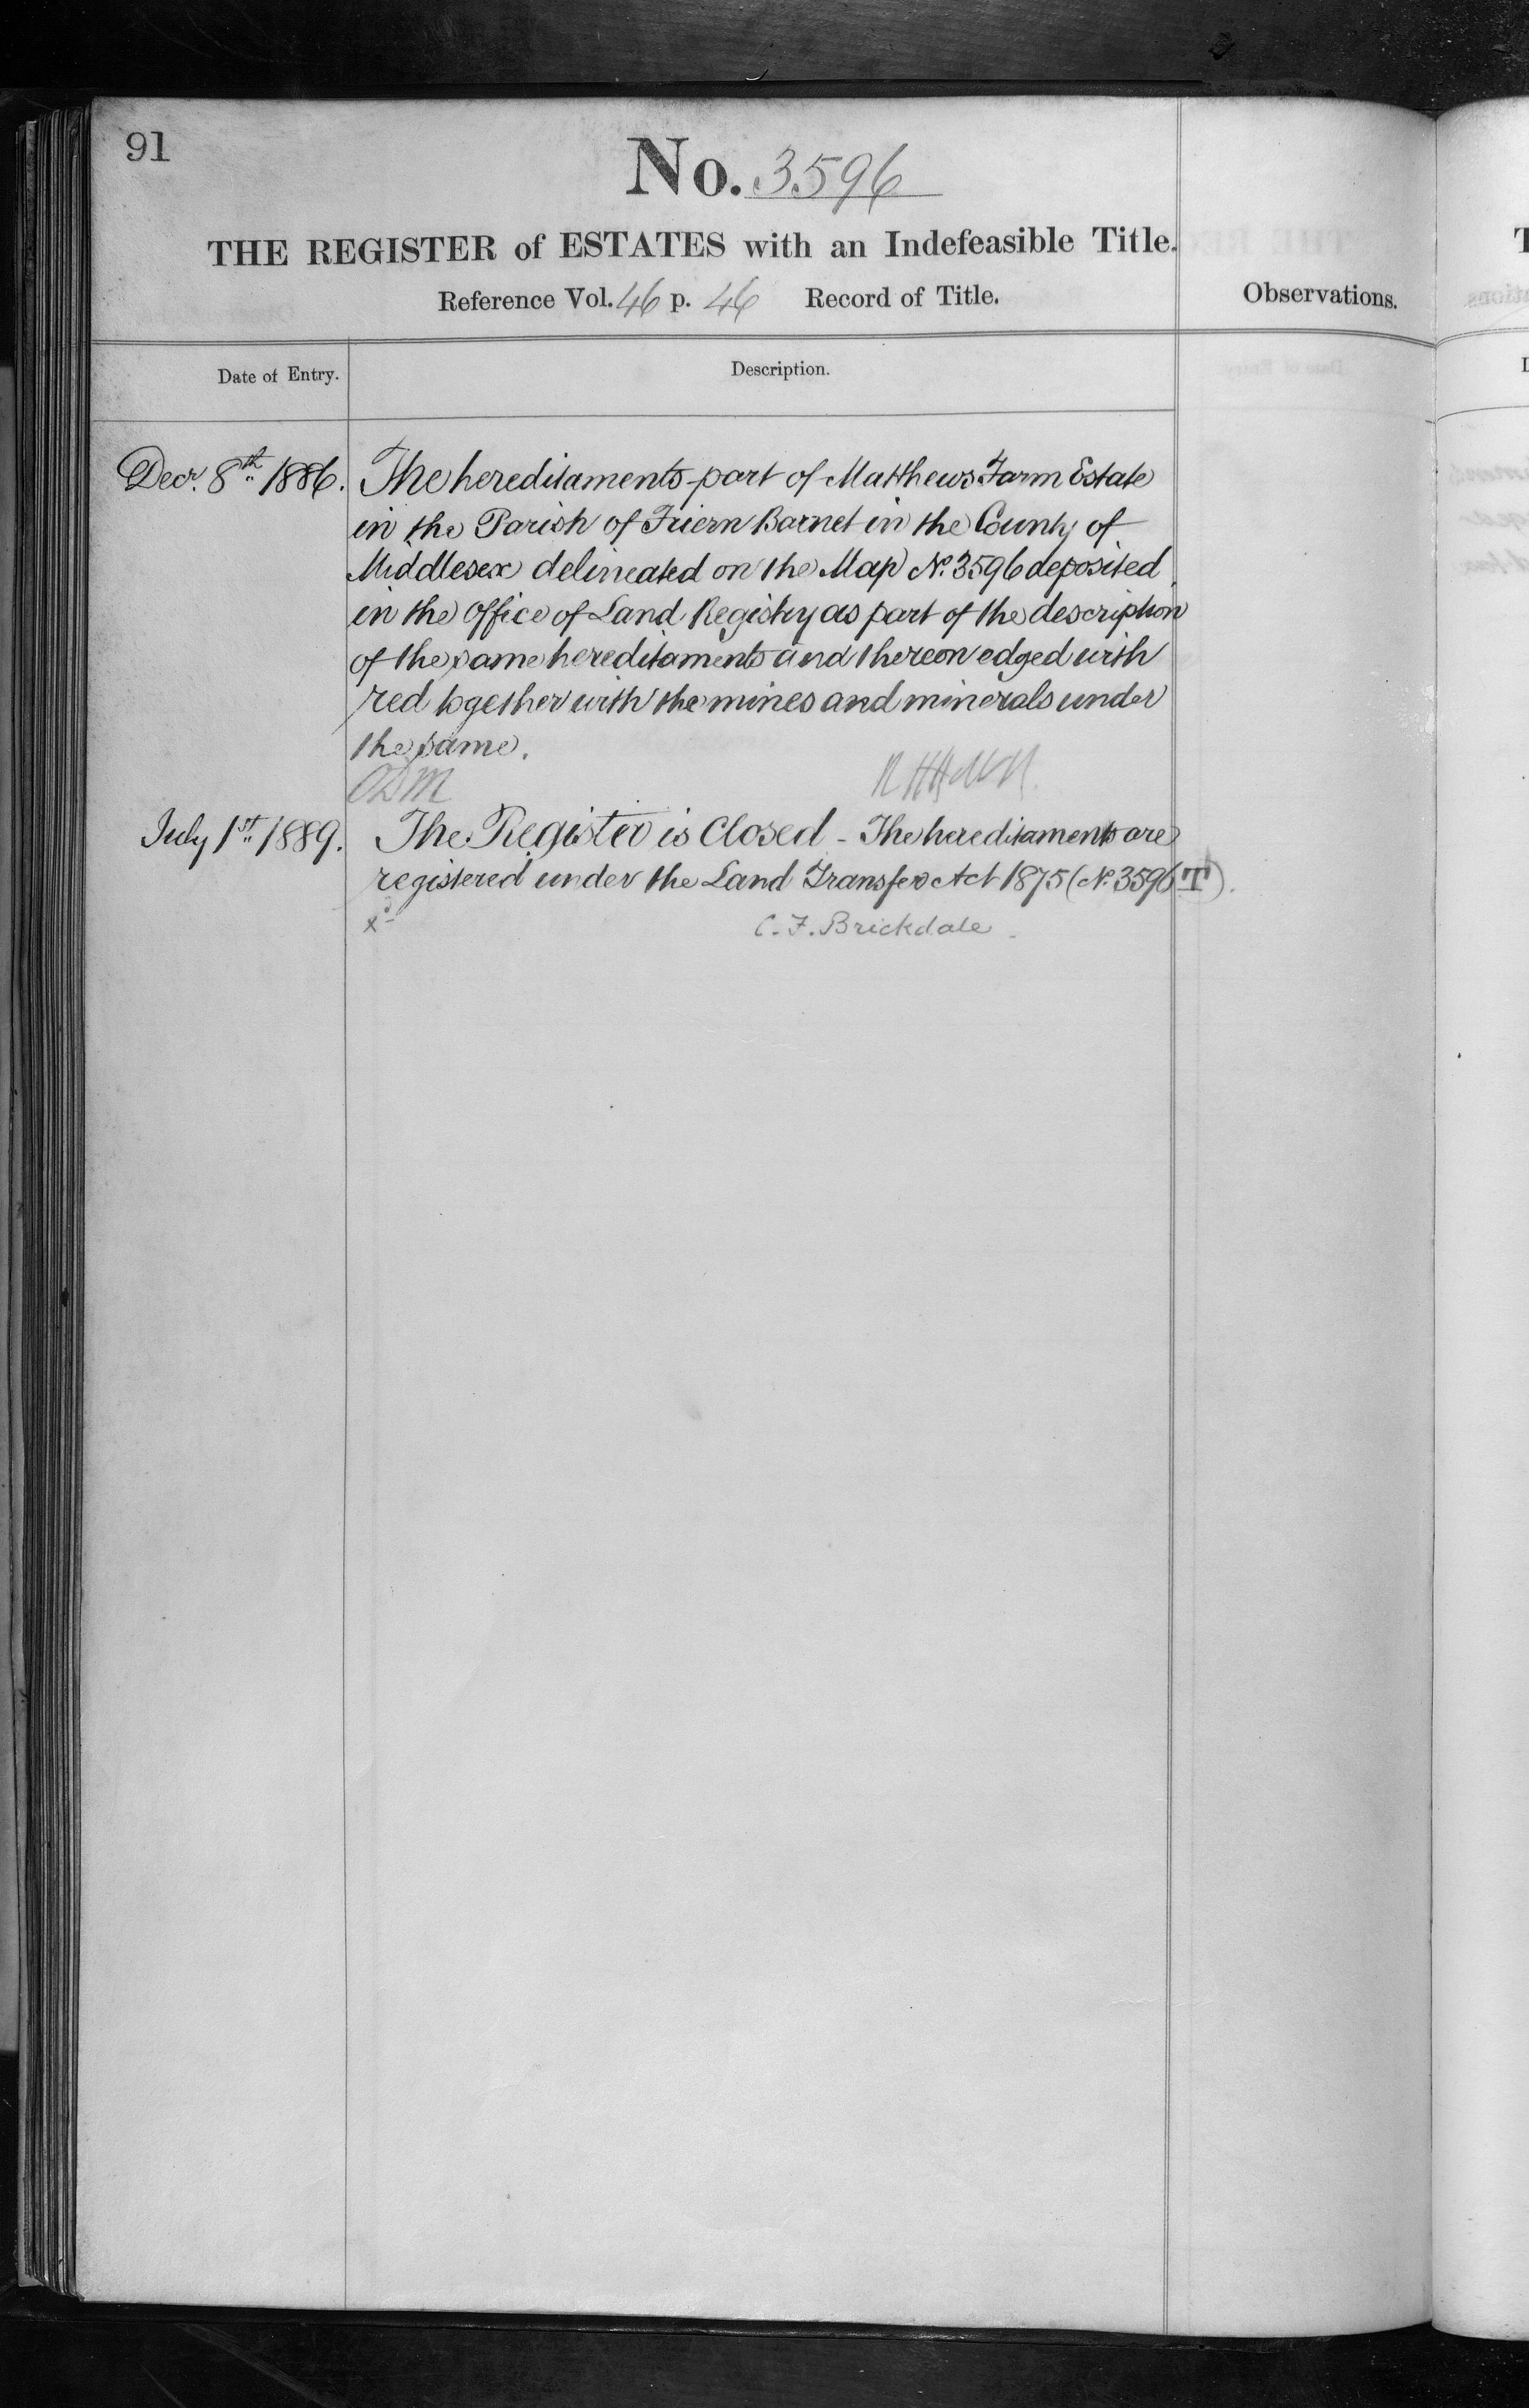 91
No. 3596
THE REGISTER of ESTATES with an Indefeasible Title.
Reference Vol. 46 p. 46 Record of Title.
Observations.
Date of Entry.
Description.
Decr. 8th 1886.
The hereditaments part of Matthews Farm Estate
in the Parish of Friern Barnet in the County of
Middlesex delineated on the Map No. 3596 deposited
in the Office of Land Registry as part of the description
of the same hereditaments and thereon edged with
red together with the mines and minerals under
the same.
July 1st 1889.
The Register is Closed - The hereditaments are
registered under the Land Transfer Act 1875 (No. 3596 T).
C. F. Brickdale